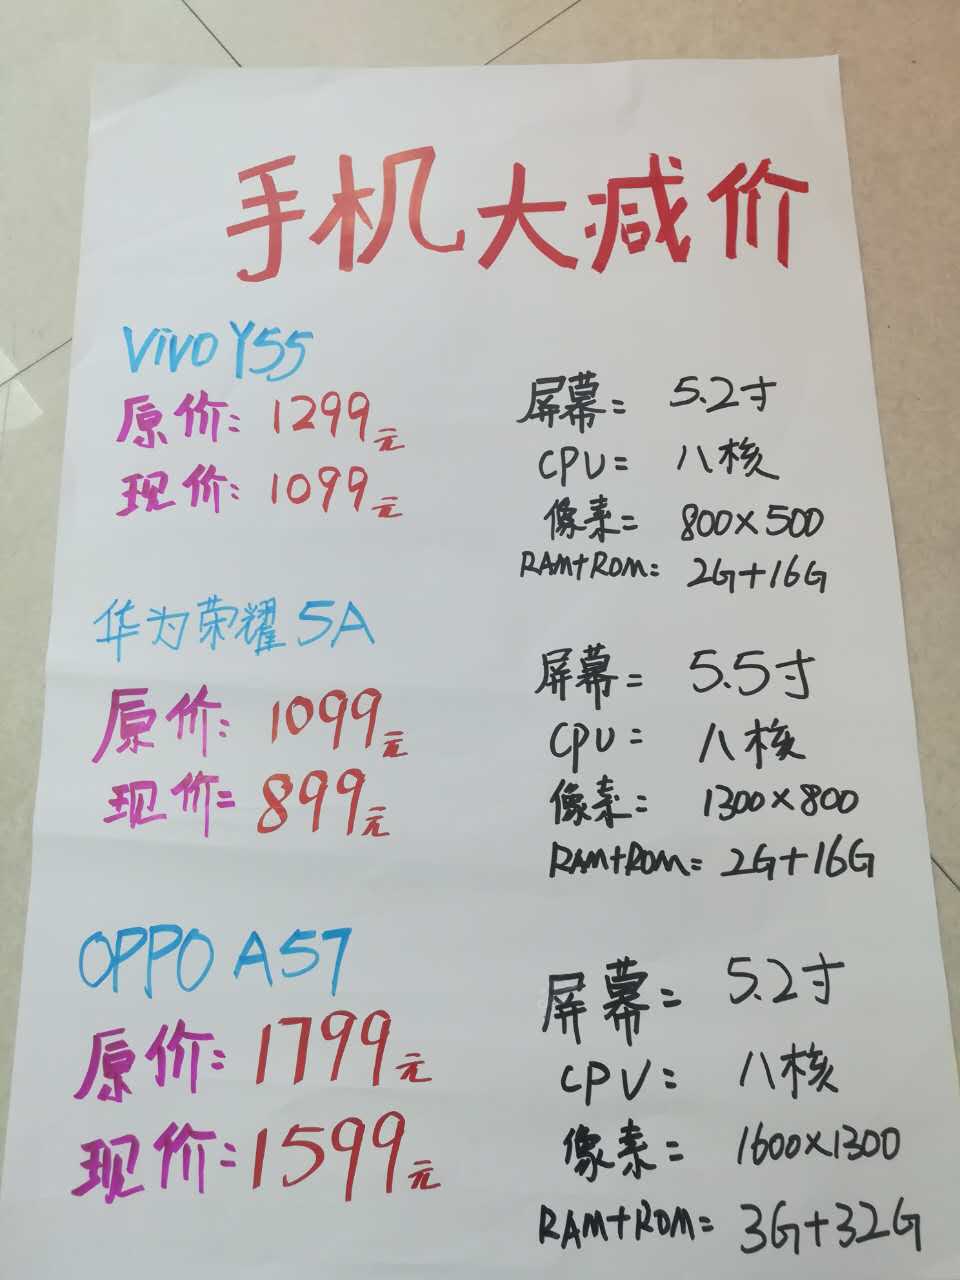 手机大减价
vivo Y55
原价: 1299元
现价: 1099元
屏幕: 5.2寸
CPU: 八核
像素: 800×500
RAM+ROM: 2G+16G
华为荣耀 5A
原价: 1099元
现价: 899元
屏幕: 5.5寸
CPU: 八核
像素: 1300×800
RAM+ROM: 2G+16G
OPPO A57
原价: 1799元
现价: 1599元
屏幕: 5.2寸
CPU: 八核
像素: 1600×1300
RAM+ROM: 3G+32G